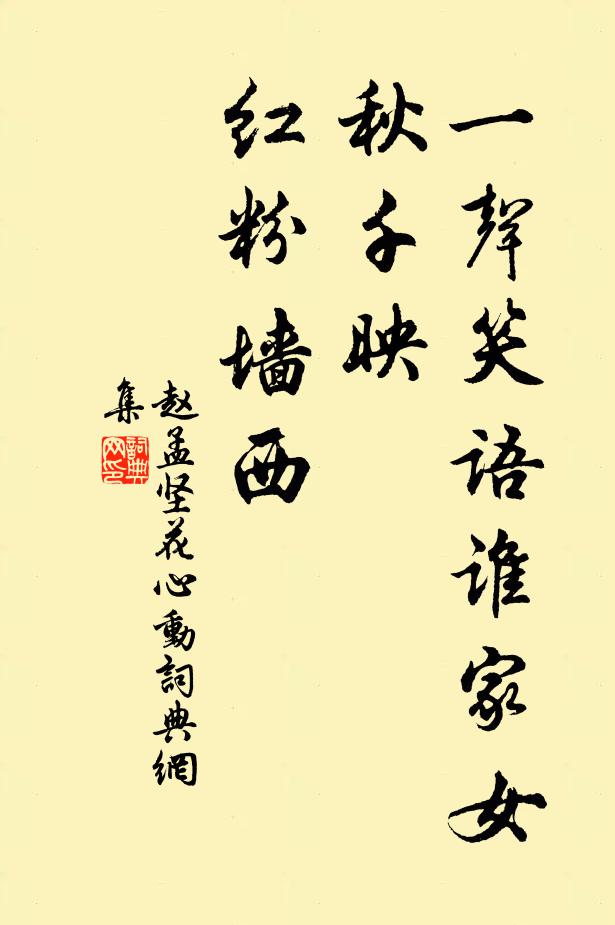 一聲笑语谁家女
秋千映
红粉墙西
赵孟坚花心動詞典網
集
詞典
网印